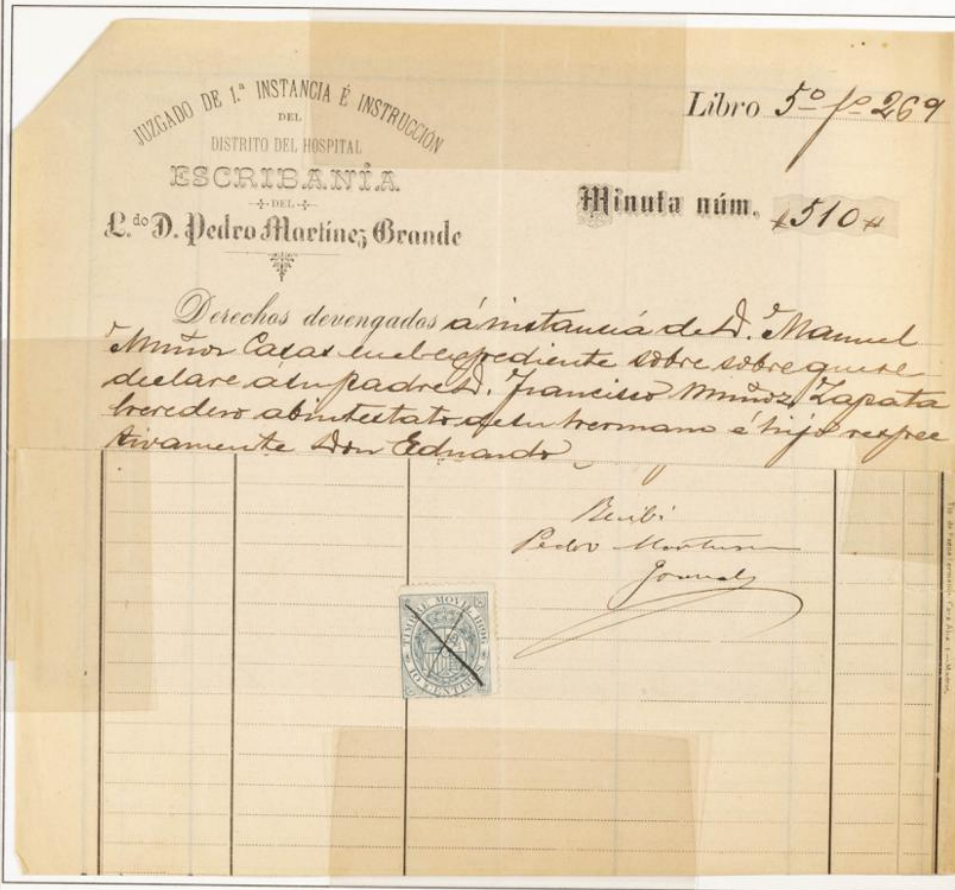 JUZGADO DE 1.ª INSTANCIA É INSTRUCCIÓN
DEL
DISTRITO DEL HOSPITAL
ESCRIBANÍA
DEL
L.do D. Pedro Martínez Grande
Libro 5º fº 269
Minuta núm. 510
Derechos devengados á instancia de D. Manuel
Muñoz Casas en el expediente sobre sobre que se
declare á su padre D. Francisco Muñoz Zapata
heredero abintestato de su hermano é hijo respec
tivamente Don Eduardo
Recibí
Pedro Martínez
TIMBRE MOVIL 1896
10 CENTIMOS